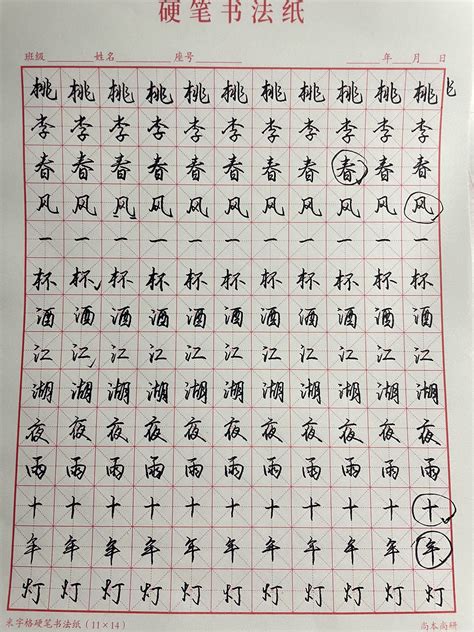 硬笔书法纸
班级 姓名 座号 年 月 日
桃桃桃桃桃桃桃桃桃桃桃
李李李李李李李李李李李
春春春春春春春春春春春
风风风风风风风风风风风
一一一一一一一一一一一
杯杯杯杯杯杯杯杯杯杯杯
酒酒酒酒酒酒酒酒酒酒酒
江江江江江江江江江江江
湖湖湖湖湖湖湖湖湖湖湖
夜夜夜夜夜夜夜夜夜夜夜
雨雨雨雨雨雨雨雨雨雨雨
十十十十十十十十十十十
年年年年年年年年年年年
灯灯灯灯灯灯灯灯灯灯灯
米字格硬笔书法纸(11×14) 尚本尚研